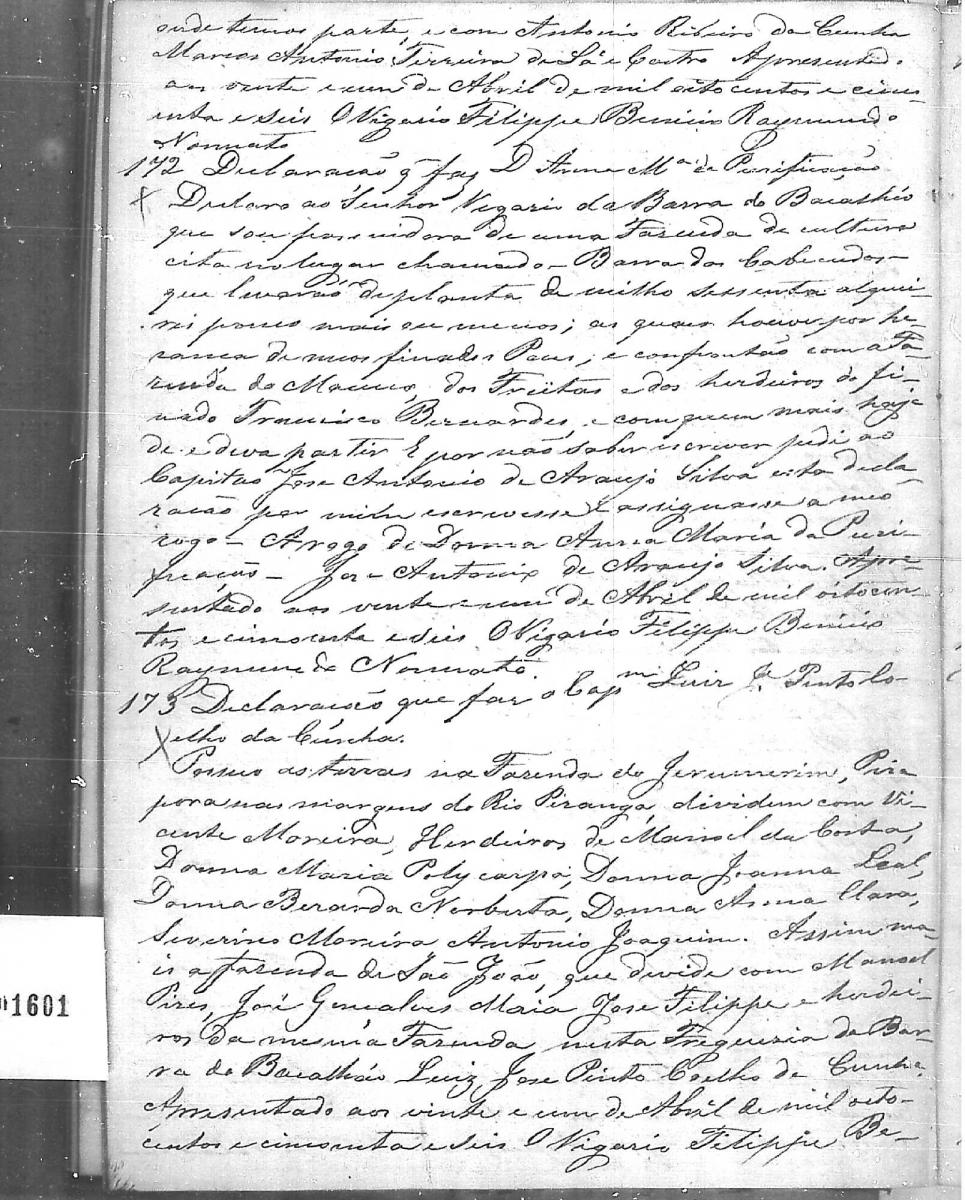 onde temos parte, e com Antonio Ribeiro da Cunha
Marcos Antonio Ferreira de Sá e Castro Apresentado
aos vente e um de Abril de mil oito centos e cinco-
enta e seis O Vigario Filippe Benicio Raymundo
Nonnato
172 Declaracão q faz D Anna Mª da Purificação
X Declaro ao Senhor Vigario da Barra do Bacalháo
que sou possuidora de uma Fazenda de cultura
cita no lugar chamado - Barra dos Cabecudos -
que levarão de planta de milho sessenta alquei-
res pouco mais ou menos; as quaes houve por he-
ranca de meos finados Paes, e confrontão com a Fa
zenda do dos Freitas e dos herdeiros do fi-
nado Francisco Bernardes, e com quem mais haja
de e deva partir E por não saber escrever pedi ao
Capitão Jose Antonio de Araujo Silva esta decla-
racão por mim escrevesse e assignasse a meo
rogo - A rogo de Donna Anna Maria da Puri-
ficacão - Jose Antonio de Araujo Silva. Apre-
sentado aos vente e um de Abril de mil oitocen-
tos e cincoenta e seis O Vigario Filippe Benicio
Raymundo Nonnato.
173 Declaracão que faz o Capm Luiz Je Pinto Co-
X elho da Cunha.
Possuo as terras na Fazenda do Jerumerim, Pira
pora nas margens do Rio Piranga, dividem com Vi-
cente Moreira, Herdeiros de Manoel da Costa,
Donna Maria Polycarpa, Donna Joanna Leal,
Donna Berarda Norberta, Donna Anna Clara,
Severino Moreira Antonio Joaquim. Assim ma-
is a fazenda de São João, que devide com Manoel
Pires, José Goncalves Maia Jose Filippe e herdei-
ros da mesma Fazenda nesta Freguezia da Bar-
ra do Bacalháo Luiz Jose Pinto Coelho da Cunha.
Apresentado aos vinte e um de Abril de mil oito-
centos e cincoenta e seis O Vigario Filippe Be-
1601